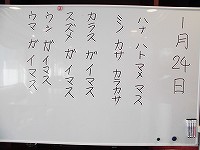 1月24日
ハナ ハト マメ マス
ミノ カサ カラカサ
カラス ガ イマス
スズメ ガ イマス
ウシ ガ イマス
ウマ ガ イマス